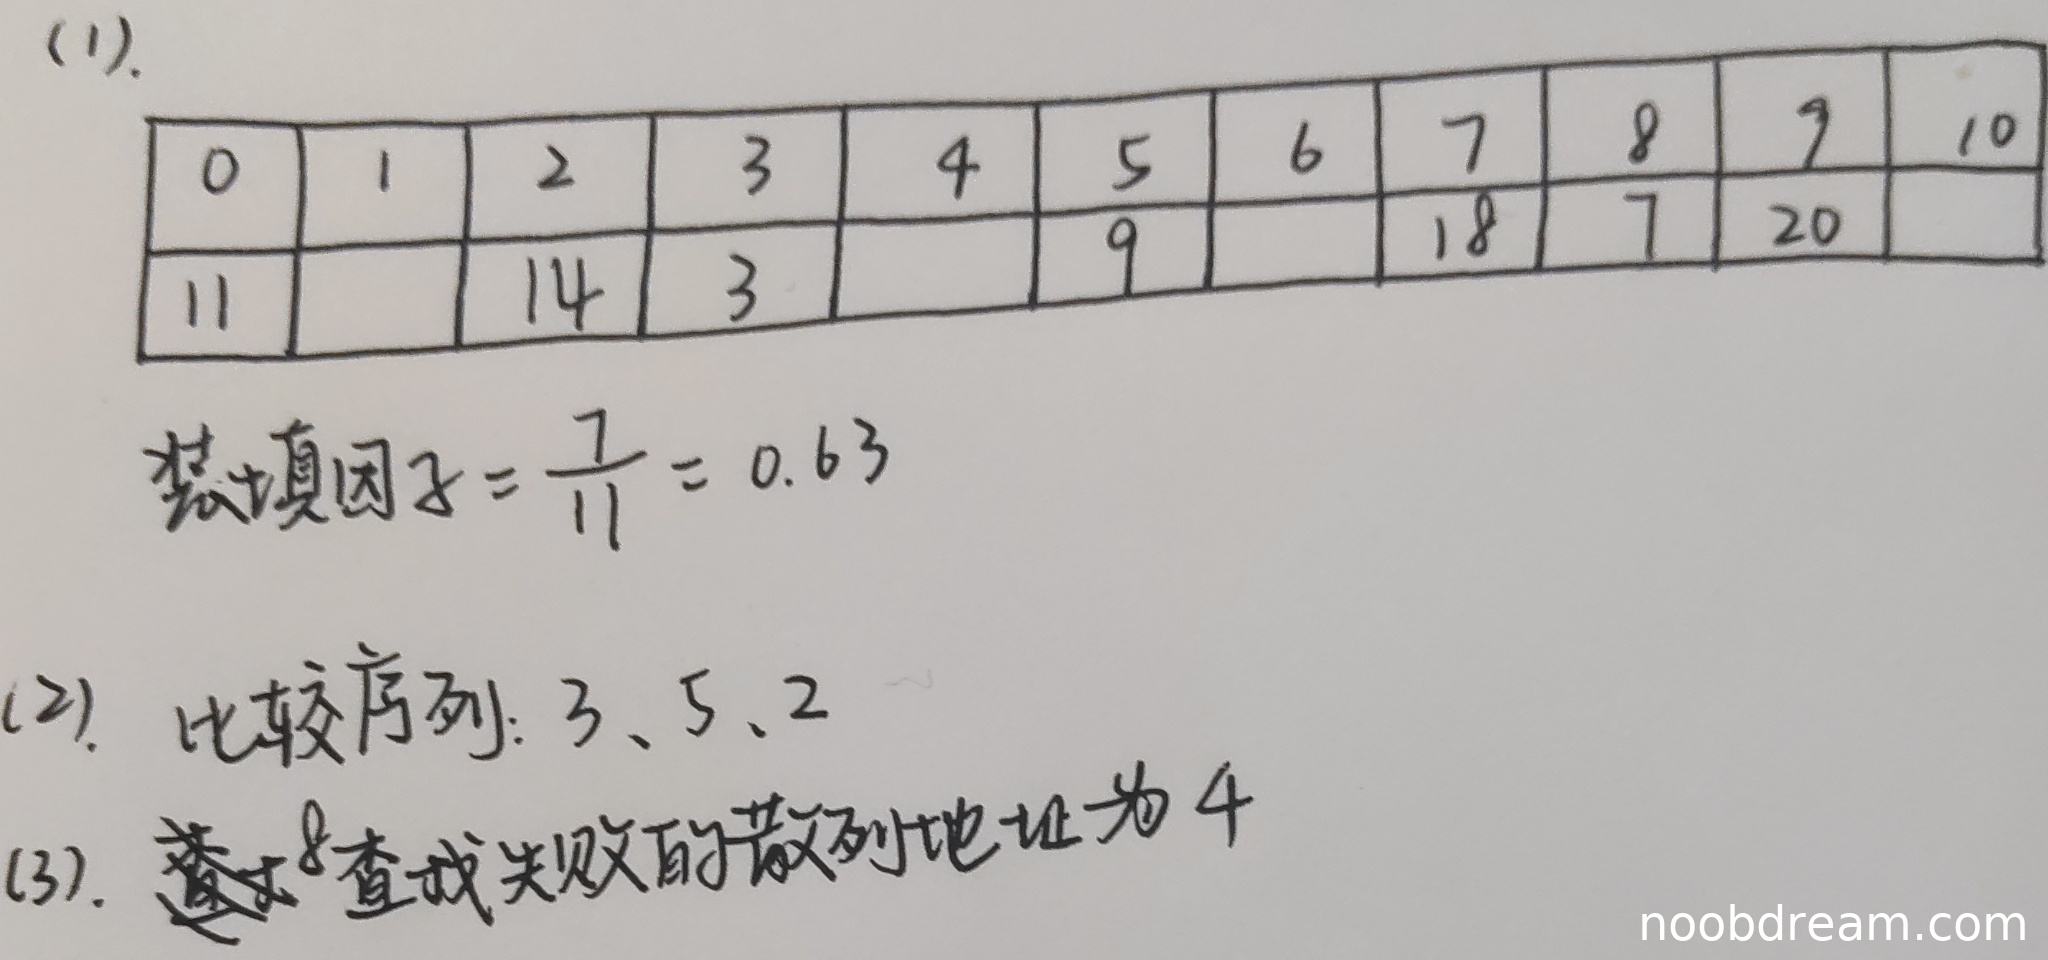 (1).
0 1 2 3 4 5 6 7 8 9 10
11 14 3 9 18 7 20
装填因子 = 7/11 = 0.63
(2). 比较序列: 3、5、2
(3). 8查找失败的散列地址为 4
noobdream.com